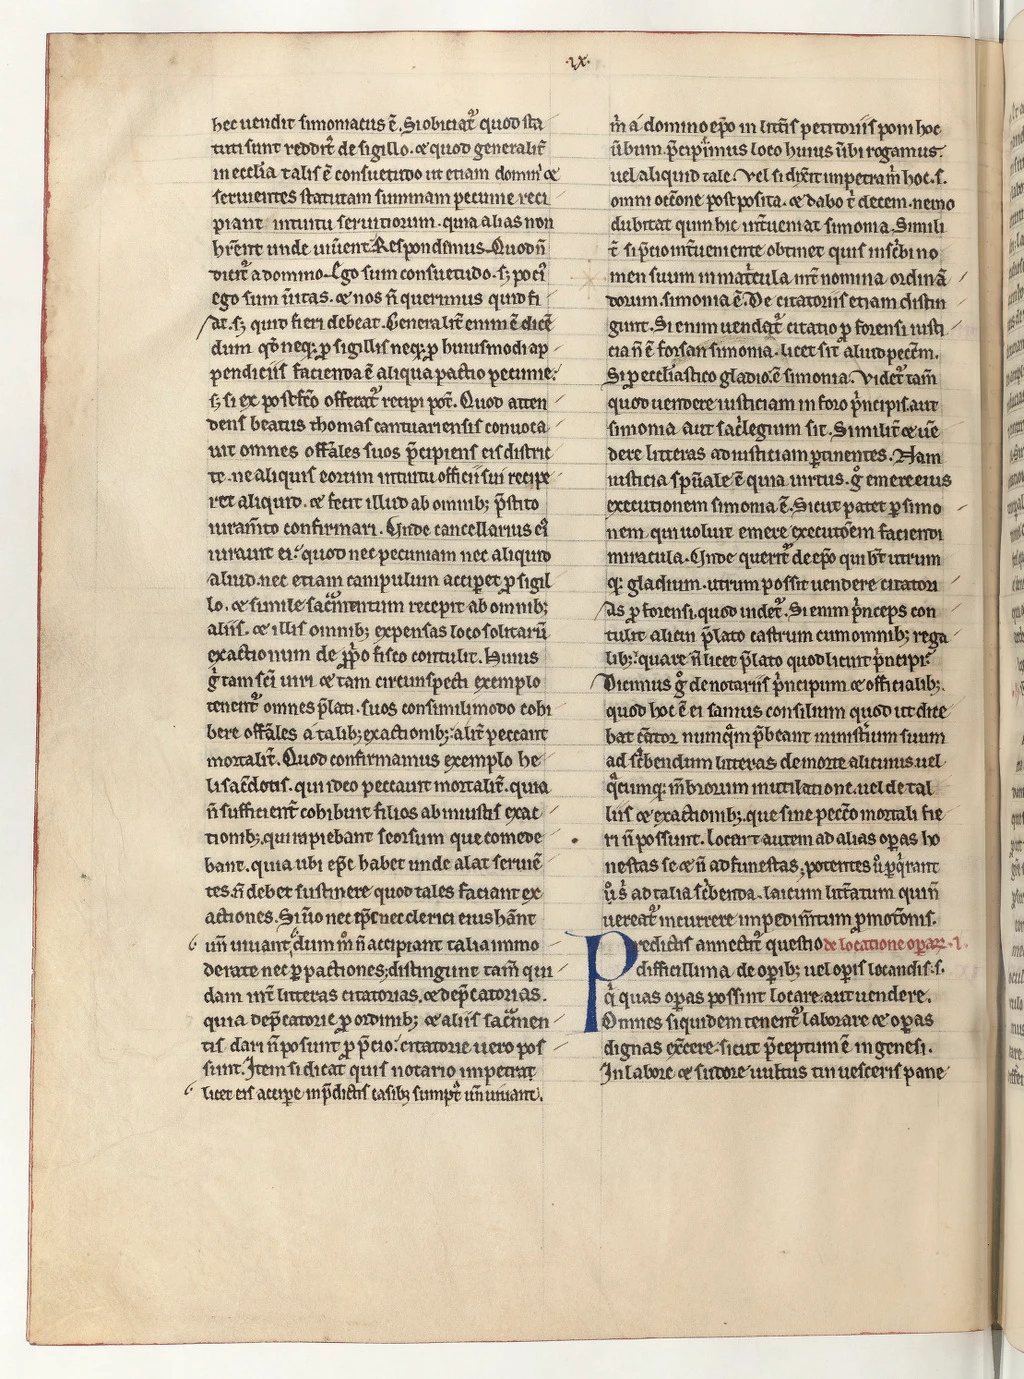 ·ix·
hec uendit simoniacus ē. Si obiciat᷑ quod sta
tuti sunt reddit᷑ de sigillo. ⁊ quod generalit᷑
in ecclīa talis ē consuetudo ut etiam domini ⁊
seruientes statutam summam pecunie reci
piant intuitu seruitiorum. quia alias non
hr̄ent unde uiuerent. Respondemus. Quod ñ
dicit᷑ a domino. Ego sum consuetudo. sꝫ poci᷒
ego sum ūitas. ⁊ nos ñ querimus quid fi
at. sꝫ quid fieri debeat. Generalit᷑ enim ē dicē
dum qd̄ neqꝫ ꝑ sigillis neqꝫ ꝑ huiusmodi ap
pendiciis facienda ē aliqua pactio pecunie.
sꝫ si ex postfc̄o offerat᷑ recipi pot̄. Quod atten
dens beatus thomas cantuariensis conuoca
uit omnes offic̄iales suos p̄cipiens eis distric
te. ne aliquis eorum intuitu officii sui recipe
ret aliquid. ⁊ fecit illud ab omnibꝫ p̄stito
iuram̄to confirmari. Unde cancellarius ei᷒
iurauit ei. quod nec pecuniam nec aliquid
aliud. nec etiam canipulum acciperet ꝓ sigil
lo. ⁊ simile sac̄mentum recepit ab omnibꝫ
aliis. ⁊ illis omnibꝫ expensas loco solitarū
exactionum de ꝓp̄o fisco contulit. Huius
g̊ tam sc̄i uiri ⁊ tam circunspecti exemplo
tenent᷑ omnes p̄lati. suos consimili modo cohi
bere offic̄iales a talibꝫ exactionibꝫ. alit᷑ peccant
mortalit᷑. Quod confirmamus exemplo he
li sac̄dotis. qui ideo peccauit mortalit᷑. quia
ñ sufficient᷑ cohibuit filios ab iniustis exac
tionibꝫ. qui rapiebant seorsum que comede
bant. quia ubi ep̄c habet unde alat seruiē
tes. ñ debet sustinere quod tales faciant ex
actiones. Si ū̊o nec ep̄c nec clerici eius habent
un̄ uiuant. dum m̊ ñ accipiant talia immo
derate nec ꝑ pactiones; distingunt tam̄ qui
dam int᷑ litteras citatorias. ⁊ dep̄catorias.
quia dep̄catorie ꝓ ordinibꝫ ⁊ aliis sac̄men
tis dari ñ possunt ꝓ p̄cio. citatorie uero pos
sunt. Item si dicat quis notario impetrat
licet eis accipe in p̄dictis casibꝫ sumpt᷑ un̄ uiuant.
m̄ a domino ep̄o in litt̄is petitoriis poni hoc
ūbum. p̄cipimus loco huius ūbi rogamus.
uel aliquid tale. Vel si dix̄it impetra m̄ hoc .s.
omni occ̄one postposita. ⁊ dabo t̄ decem. nemo
dubitat quin hic int᷑ueniat simonia. Simili
t᷑ si p̄cio int᷑ueniente obtinet quis inscribi no
men suum in mat᷑cula int᷑ nomina ordinā
dorum. simonia ē. De citatoriis etiam distin
gunt. Si enim uendat᷑ citatio ꝓ forensi iusti
cia ñ ē forsan simonia. licet sit aliud pecc̄m.
Si ꝓ ecclesiastico gladio. ē simonia. Videt᷑ tam̄
quod uendere iusticiam in foro p̄ncipis. aut
simonia aut sac̄legium sit. Similit᷑ ⁊ uē
dere litteras ad iusticiam ꝑtinentes. Nam
iusticia sp̄ualis ē quia uirtus. g̊ emere eius
executionem simonia ē. Sicut patet ꝑ simo
nem. qui uoluit emere executōem faciendi
miracula. Unde querit᷑ de ep̄o qui hēt utrum
qꝫ gladium. utrum possit uendere citatori
as ꝓ forensi. quod uidet᷑. Si enim p̄nceps con
tulit alicui p̄lato castrum cum omnibꝫ rega
libꝫ. quare ñ licet p̄lato quod licuit p̄ncipi.
Dicimus g̊ de notariis p̄ncipum ⁊ officialibꝫ.
quod hoc ē ei sanius consilium quod ut dice
bat cātor numq̄m p̄beant minist̄ium suum
ad sc̄bendum litteras de morte alicuius uel
q̄cumqꝫ m̄brorum mutilatione. uel de tal
liis ⁊ exactionibꝫ. que sine pecc̄o mortali fie
ri ñ possunt. Locent autem ad alias oꝑas ho
nestas se ⁊ ñ ad funestas; potentes ū̊ ꝑq̄rant
ad talia sc̄benda. laicum litt̄atum qui ñ
uereat᷑ incurrere impedim̄tum ꝓmotōnis.
Predictis annectit᷑ questio de locatione oꝑarum .i.
difficillima de oꝑibꝫ uel oꝑis locandis. s.
q̄ quas oꝑas possint locare. aut uendere.
Omnes siquidem tenent᷑ laborare ⁊ oꝑas
dignas exc̄ere. sicut p̄ceptum ē in genesi.
In labore ⁊ sudore uultus tui uesceris pane